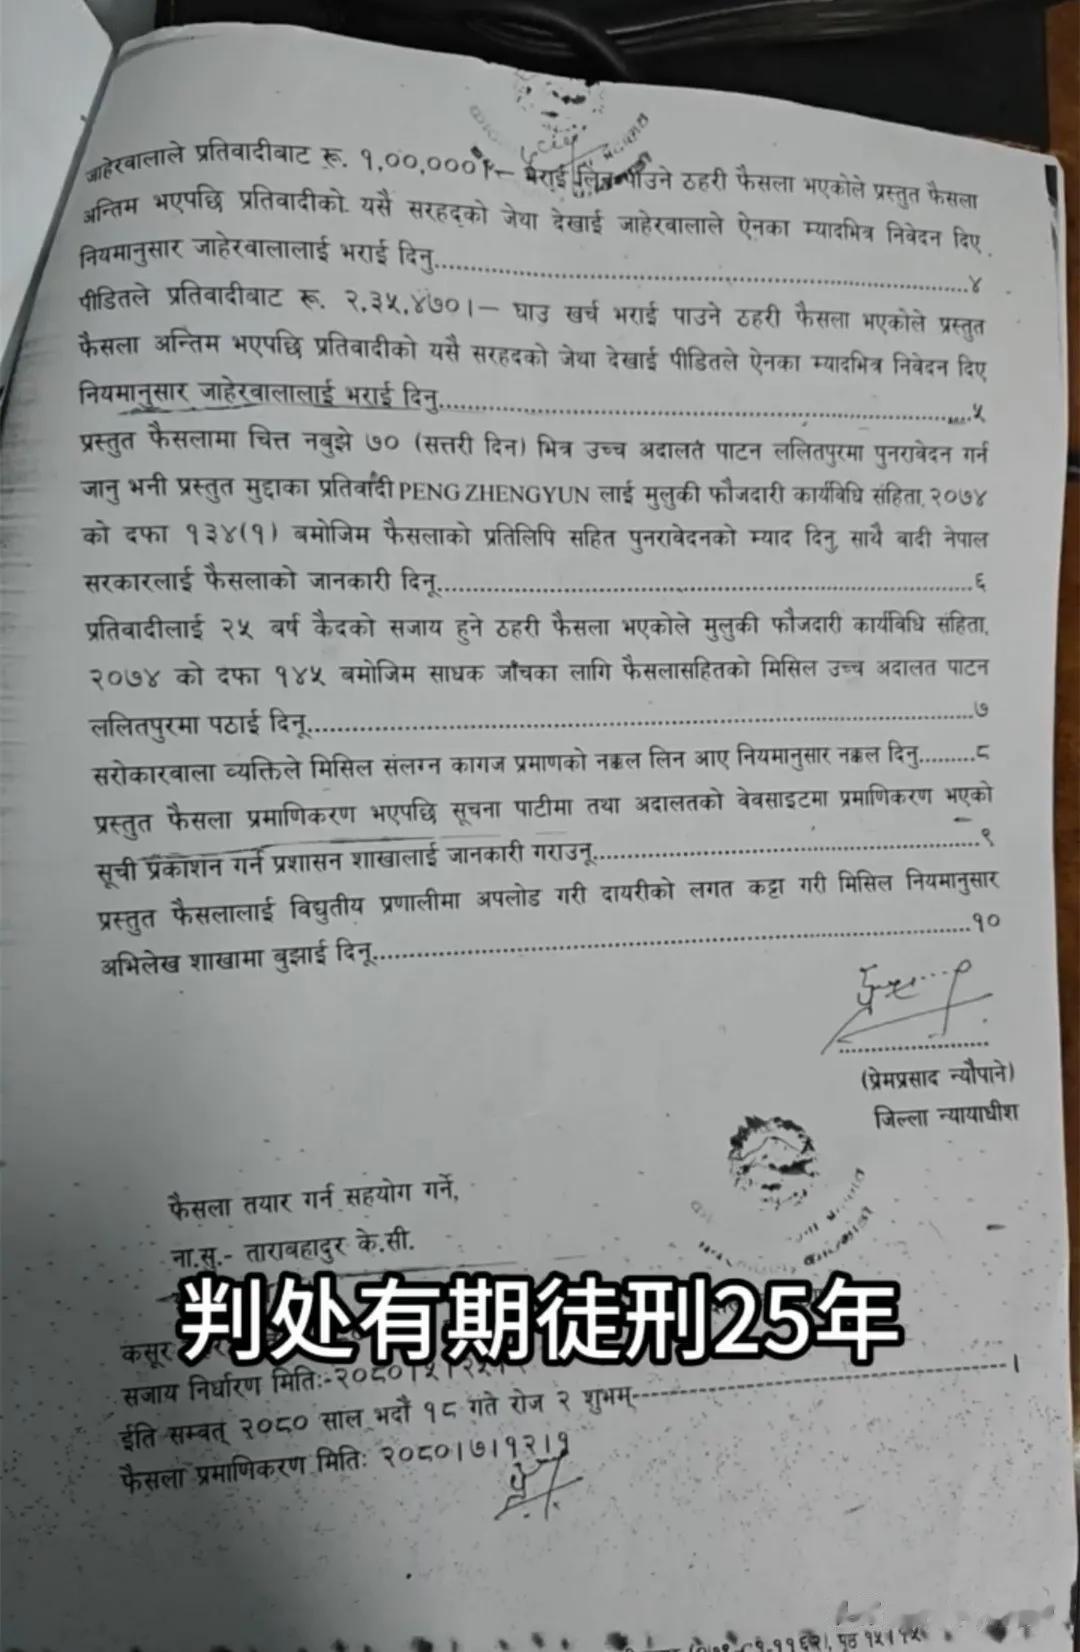 जाहेरवालाले प्रतिवादीबाट रू. १,००,०००।– भराई लिन पाउने ठहरी फैसला भएकोले प्रस्तुत फैसला
अन्तिम भएपछि प्रतिवादीको यसै सरहदको जेथा देखाई जाहेरवालाले ऐनका म्यादभित्र निवेदन दिए
नियमानुसार जाहेरवालालाई भराई दिनु..........४
पीडितले प्रतिवादीबाट रू. २,३५,४७०।– घाउ खर्च भराई पाउने ठहरी फैसला भएकोले प्रस्तुत
फैसला अन्तिम भएपछि प्रतिवादीको यसै सरहदको जेथा देखाई पीडितले ऐनका म्यादभित्र निवेदन दिए
नियमानुसार जाहेरवालालाई भराई दिनु..........५
प्रस्तुत फैसलामा चित्त नबुझे ७० (सत्तरी दिन) भित्र उच्च अदालत पाटन ललितपुरमा पुनरावेदन गर्न
जानु भनी प्रस्तुत मुद्दाका प्रतिवादी PENG ZHENGYUN लाई मुलुकी फौजदारी कार्यविधि संहिता, २०७४
को दफा १३४(१) बमोजिम फैसलाको प्रतिलिपि सहित पुनरावेदनको म्याद दिनु, साथै वादी नेपाल
सरकारलाई फैसलाको जानकारी दिनू..........६
प्रतिवादीलाई २५ बर्ष कैदको सजाय हुने ठहरी फैसला भएकोले मुलुकी फौजदारी कार्यविधि संहिता,
२०७४ को दफा १४५ बमोजिम साधक जाँचका लागि फैसलासहितको मिसिल उच्च अदालत पाटन
ललितपुरमा पठाई दिनू..........७
सरोकारवाला व्यक्तिले मिसिल संलग्न कागज प्रमाणको नक्कल लिन आए नियमानुसार नक्कल दिनु.........८
प्रस्तुत फैसला प्रमाणिकरण भएपछि सूचना पाटीमा तथा अदालतको वेवसाइटमा प्रमाणिकरण भएको
सूची प्रकाशन गर्न प्रशासन शाखालाई जानकारी गराउनू..........९
प्रस्तुत फैसलालाई विद्युतीय प्रणालीमा अपलोड गरी दायरीको लगत कट्टा गरी मिसिल नियमानुसार
अभिलेख शाखामा बुझाई दिनू..........१०
(प्रेमप्रसाद न्यौपाने)
जिल्ला न्यायाधीश
फैसला तयार गर्न सहयोग गर्ने,
ना.सु.- ताराबहादुर के.सी.
判处有期徒刑25年
कसूर
सजाय निर्धारण मितिः-२०८०।५।
ईति सम्वत् २०८० साल भदौ १८ गते रोज २ शुभम्----------।
फैसला प्रमाणिकरण मितिः २०८०।७।१२।१